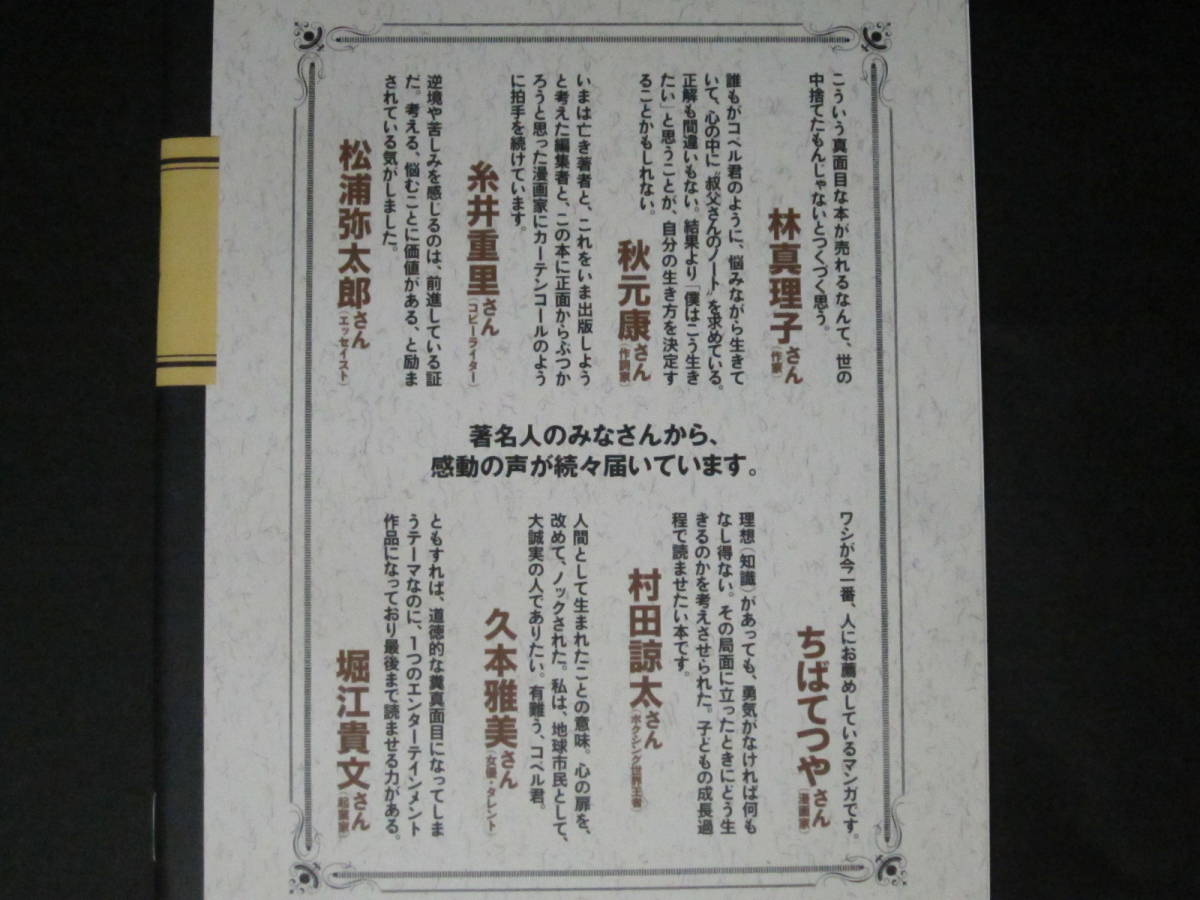 こういう真面目な本が売れるなんて、世の
中捨てたもんじゃないとつくづく思う。
林真理子さん（作家）
誰もがコペル君のように、悩みながら生きて
いて、心の中に“叔父さんのノート”を求めている。
正解も間違いもない。結果より「僕はこう生き
たい」と思うことが、自分の生き方を決定す
ることかもしれない。
秋元康さん（作詞家）
いまは亡き著者と、これをいま出版しよう
と考えた編集者と、この本に正面からぶつか
ろうと思った漫画家にカーテンコールのよう
に拍手を続けています。
糸井重里さん（コピーライター）
逆境や苦しみを感じるのは、前進している証
だ。考える、悩むことに価値がある、と励ま
されている気がしました。
松浦弥太郎さん（エッセイスト）
著名人のみなさんから、
感動の声が続々届いています。
ワシが今一番、人にお薦めしているマンガです。
ちばてつやさん（漫画家）
理想（知識）があっても、勇気がなければ何も
なし得ない。その局面に立ったときにどう生
きるのかを考えさせられた。子どもの成長過
程で読ませたい本です。
村田諒太さん（ボクシング世界王者）
人間として生まれたことの意味。心の扉を、
改めて、ノックされた。私は、地球市民として、
大誠実の人でありたい。有難う、コペル君。
久本雅美さん（女優・タレント）
ともすれば、道徳的な糞真面目になってしま
うテーマなのに、1つのエンターテインメント
作品になっており最後まで読ませる力がある。
堀江貴文さん（起業家）